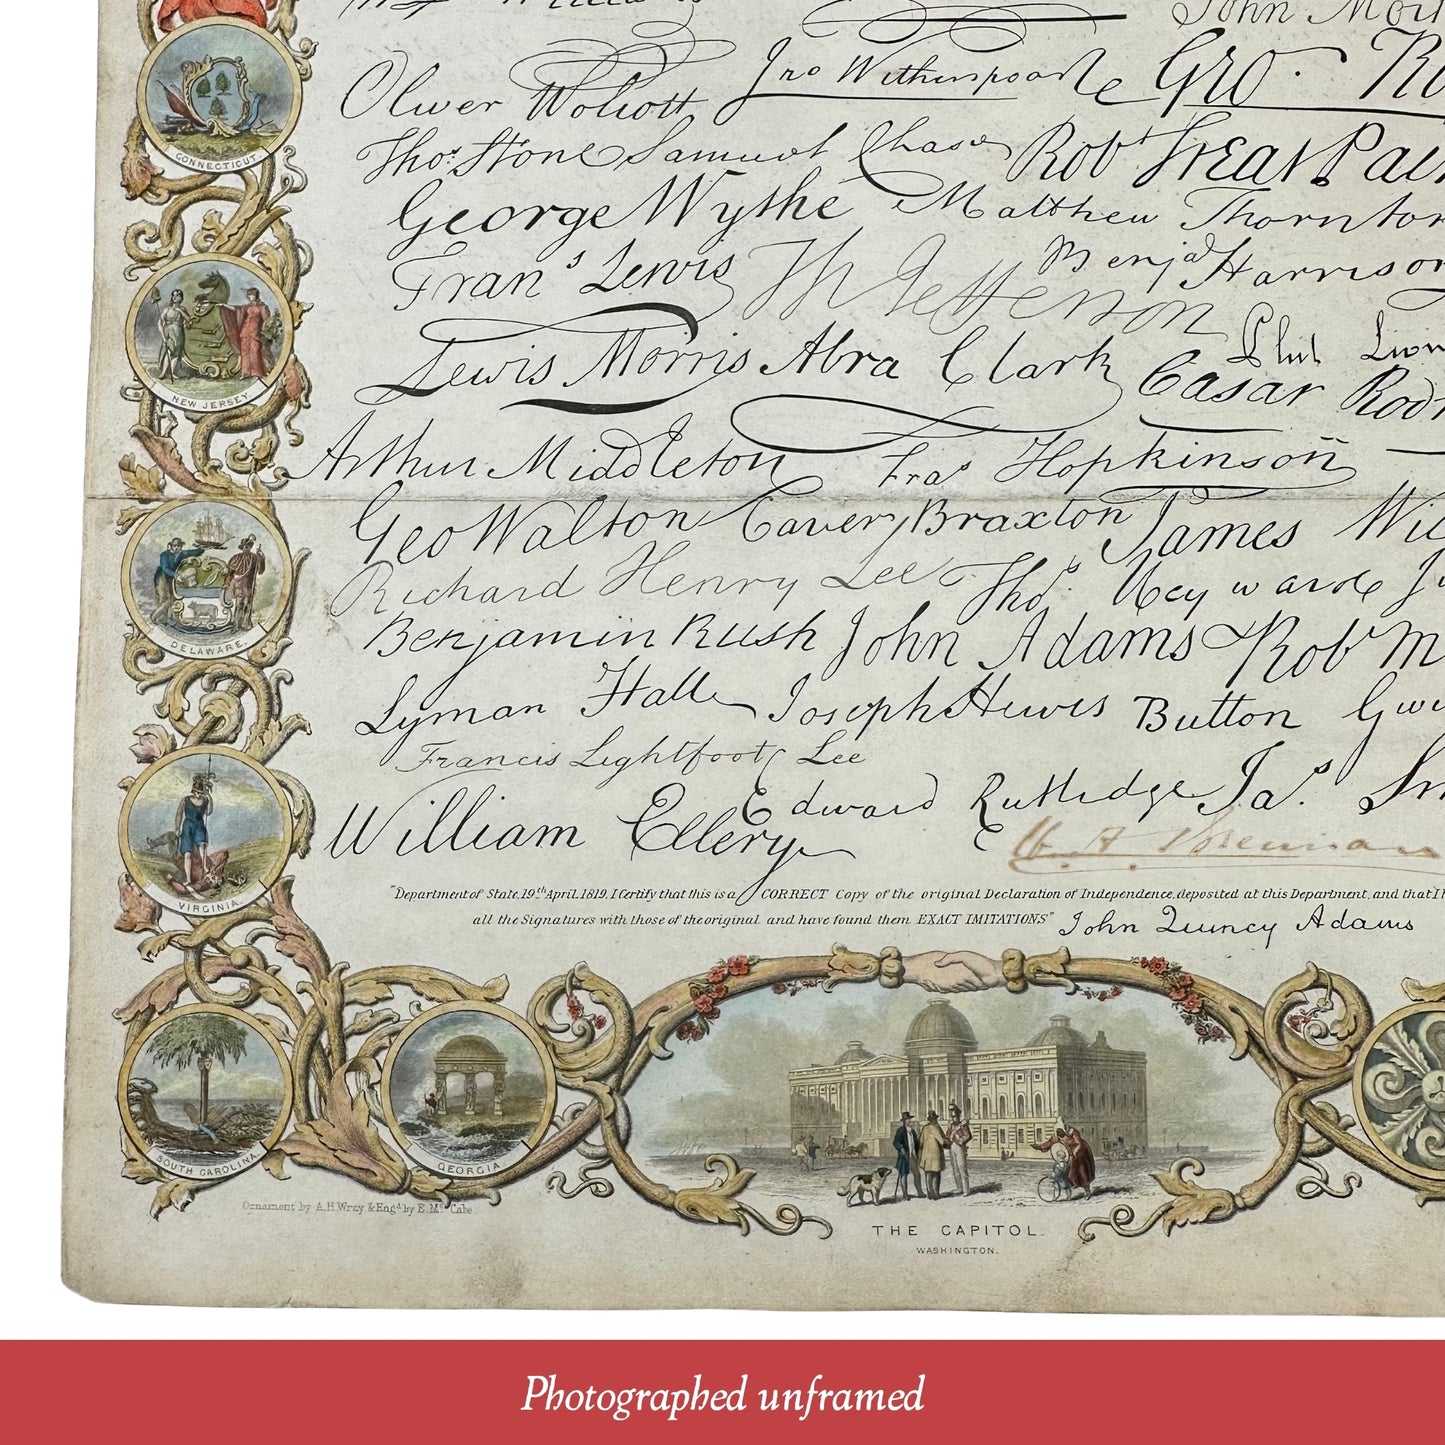 John
Oliver Wolcott Jno Witherspoon Geo. Ro
CONNECTICUT.
Thos. Stone Samuel Chase Robt Treat Pai
George Wythe Matthew Thornton
Frans Lewis Th Jefferson Benja Harrison
Lewis Morris Abra Clark Phil Livin
NEW JERSEY.
Cæsar Rodn
Arthur Middleton Fras Hopkinson
Geo Walton Carter Braxton James Wil
Richard Henry Lee Thos Heyward Ju
Benjamin Rush John Adams Rob M
DELAWARE.
Lyman Hall Joseph Hewes Button Gwi
Francis Lightfoot Lee
William Ellery Edward Rutledge Jas. Sm
VIRGINIA.
"Department of State, 19th April, 1819. I Certify that this is a CORRECT Copy of the original Declaration of Independence, deposited at this Department, and that I h
all the Signatures with those of the original and have found them EXACT IMITATIONS" John Quincy Adams
SOUTH CAROLINA.
GEORGIA
Ornament by A.H. Wray & Engd. by E. Mc. Cabe
THE CAPITOL.
WASHINGTON.
Photographed unframed